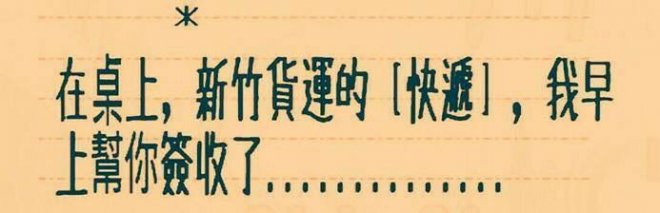 *
在桌上，新竹貨運的［快遞］，我早
上幫你簽收了...............